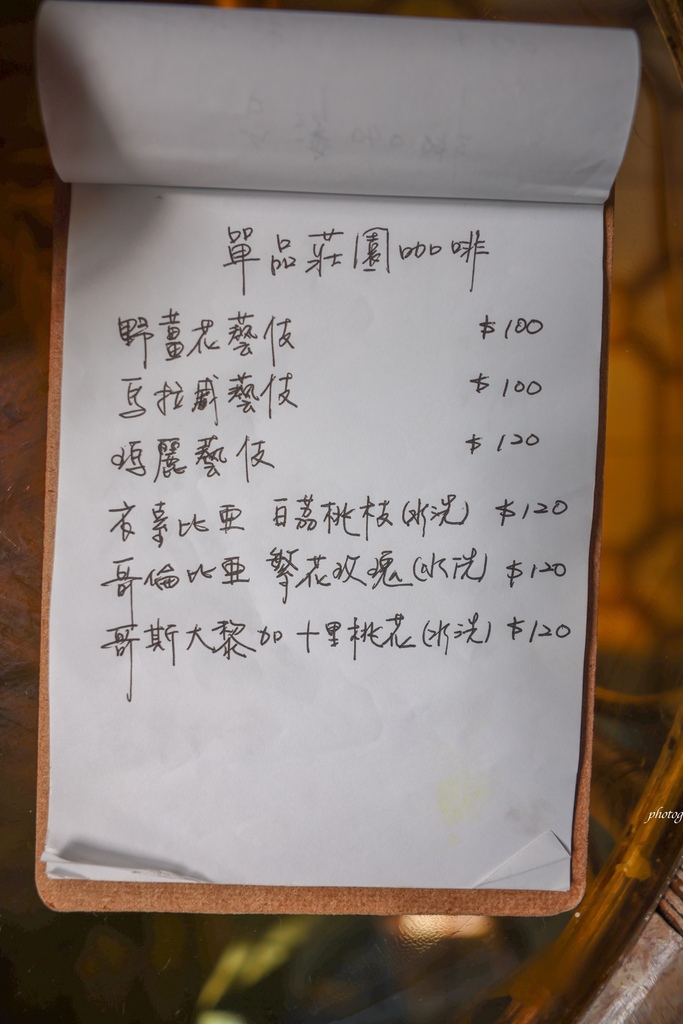 單品莊園咖啡
野薑花藝伎 $100
烏拉威藝伎 $100
瑪麗藝伎 $120
衣索比亞 百荔桃枝(水洗) $120
哥倫比亞 繁花玫瑰(水洗) $120
哥斯大黎加 十里桃花(水洗) $120
photog